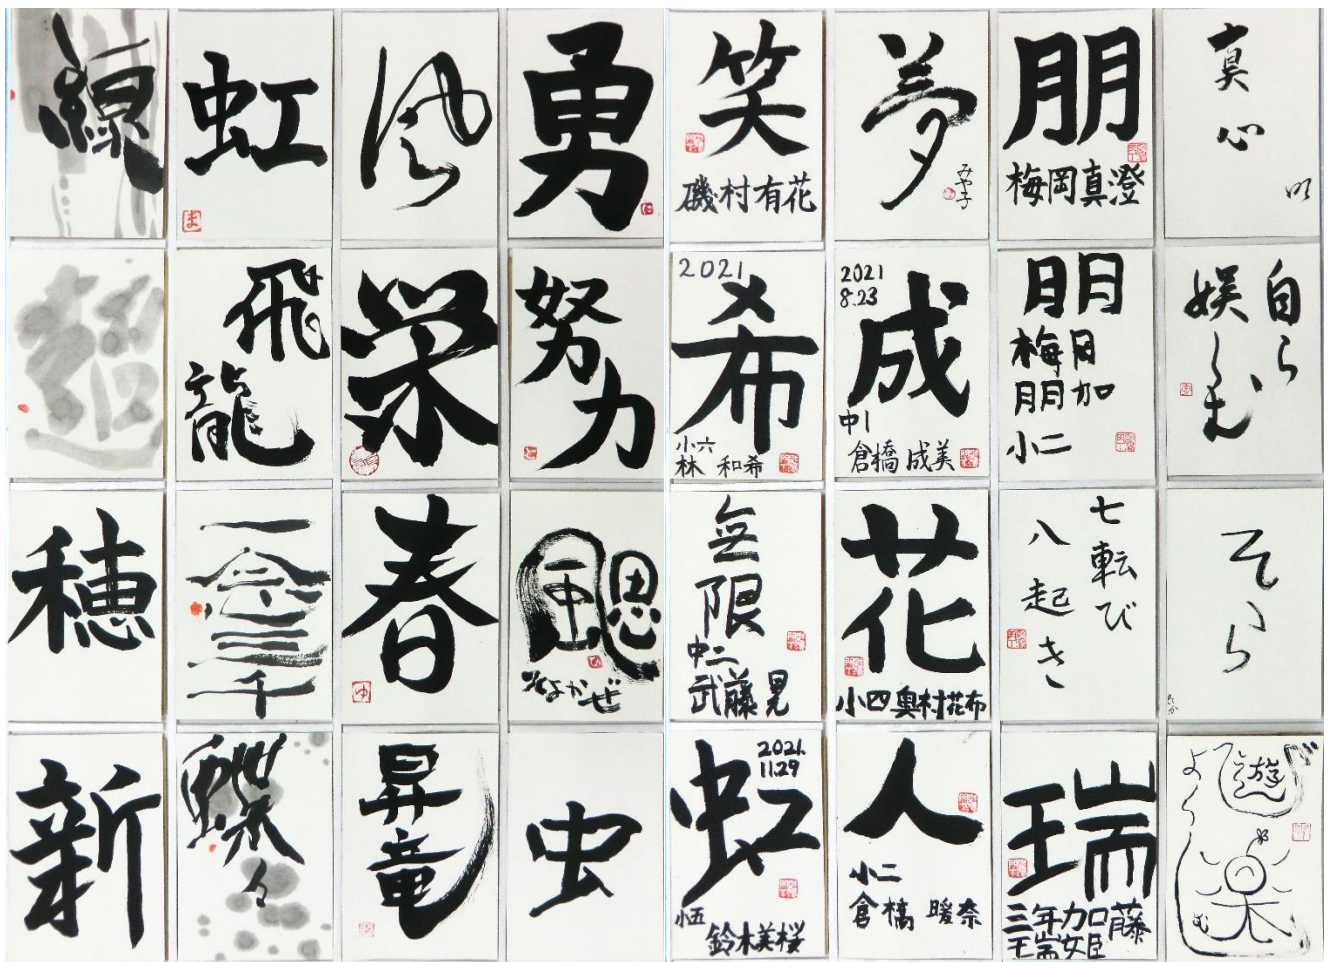 線
虹
風
勇
笑
磯村有花
夢
みや子
朋
梅岡真澄
真心
超
飛龍
栄
努力
2021
希
小六
林 和希
2021
8.23
成
中1
倉橋成美
朋
小二
自ら
娯しむ
穂
一念三千
春
颸
そよかぜ
無限
中二
武藤晃
花
小四奥村花布
七転び
八起き
そら
新
蝶々
昇竜
虫
2021.
11.29
虹
小五
鈴木美桜
人
小二
倉橋 暖奈
瑞
三年加藤
瑞姫
遊
楽